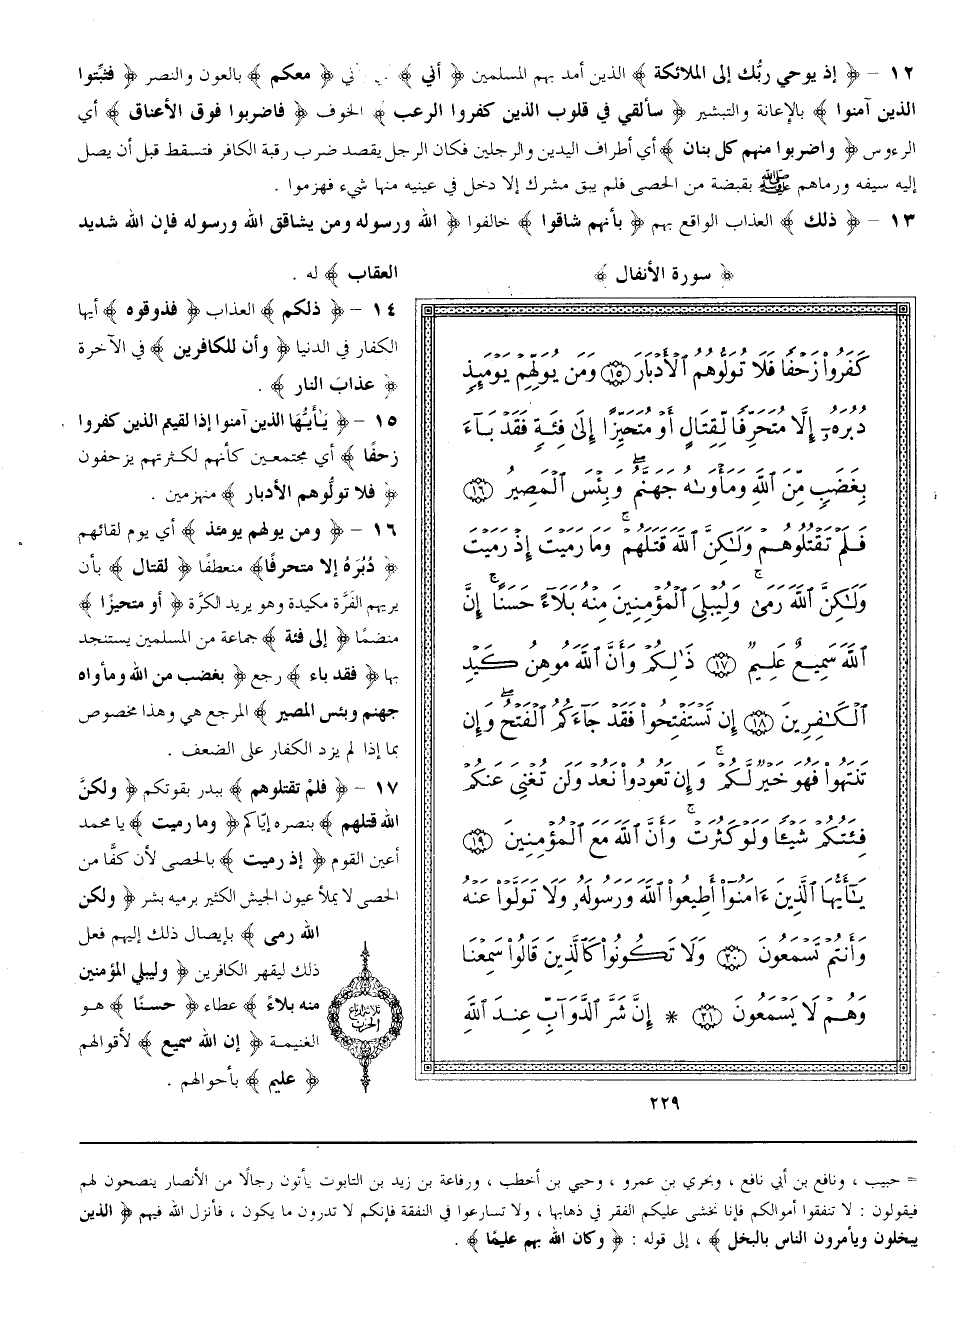 ١٢ – ﴿ إذ يوحي ربُّك إلى الملائكة ﴾ الذين أمد بهم المسلمين ﴿ أني ﴾ أي بأني ﴿ معكم ﴾ بالعون والنصر ﴿ فثبِّتوا
الذين آمنوا ﴾ بالإعانة والتبشير ﴿ سألقي في قلوب الذين كفروا الرعب ﴾ الخوف ﴿ فاضربوا فوق الأعناق ﴾ أي
الرءوس ﴿ واضربوا منهم كل بنان ﴾ أي أطراف اليدين والرجلين فكان الرجل يقصد ضرب رقبة الكافر فتسقط قبل أن يصل
إليه سيفه ورماهم ﷺ بقبضة من الحصى فلم يبق مشرك إلا دخل في عينيه منها شيء فهزموا .
١٣ – ﴿ ذلك ﴾ العذاب الواقع بهم ﴿ بأنهم شاقوا ﴾ خالفوا ﴿ الله ورسوله ومن يشاقق الله ورسوله فإن الله شديد
العقاب ﴾ له .
١٤ – ﴿ ذلكم ﴾ العذاب ﴿ فذوقوه ﴾ أيها
الكفار في الدنيا ﴿ وأن للكافرين ﴾ في الآخرة
﴿ عذابَ النار ﴾ .
١٥ – ﴿ يَأيُّها الذين آمنوا إذا لقيتم الذين كفروا
زحفًا ﴾ أي مجتمعين كأنهم لكثرتهم يزحفون
﴿ فلا تولُّوهم الأدبار ﴾ منهزمين .
١٦ – ﴿ ومن يولهم يومئذ ﴾ أي يوم لقائهم
﴿ دُبُرَهُ إلا متحرفًا﴾ منعطفًا ﴿ لقتال ﴾ بأن
يريهم الفَرَّة مكيدة وهو يريد الكرَّة ﴿ أو متحيزًا ﴾
منضمًا ﴿ إلى فئة ﴾ جماعة من المسلمين يستنجد
بها ﴿ فقد باء ﴾ رجع ﴿ بغضب من الله ومأواه
جهنم وبئس المصير ﴾ المرجع هي وهذا مخصوص
بما إذا لم يزد الكفار على الضعف .
١٧ – ﴿ فلمْ تقتلوهم ﴾ ببدر بقوتكم ﴿ ولكنَّ
الله قتلهم ﴾ بنصره إيّاكم ﴿ وما رميت ﴾ يا محمد
أعين القوم ﴿ إذ رميت ﴾ بالحصى لأن كفًّا من
الحصى لا يملأ عيون الجيش الكثير برميه بشر ﴿ ولكن
الله رمى ﴾ بإيصال ذلك إليهم فعل
ذلك ليقهر الكافرين ﴿ وليبلي المؤمنين
منه بلاءً ﴾ عطاء ﴿ حسنًا ﴾ هو
الغنيمة ﴿ إن الله سميع ﴾ لأقوالهم
﴿ عليم ﴾ بأحوالهم .
﴿ سورة الأنفال ﴾
كَفَرُوا۟ زَحْفًا فَلَا تُوَلُّوهُمُ ٱلْأَدْبَارَ ١٥ وَمَن يُوَلِّهِمْ يَوْمَئِذٍ
دُبُرَهُۥٓ إِلَّا مُتَحَرِّفًا لِّقِتَالٍ أَوْ مُتَحَيِّزًا إِلَىٰ فِئَةٍ فَقَدْ بَآءَ
بِغَضَبٍ مِّنَ ٱللَّهِ وَمَأْوَىٰهُ جَهَنَّمُ ۖ وَبِئْسَ ٱلْمَصِيرُ ١٦
فَلَمْ تَقْتُلُوهُمْ وَلَٰكِنَّ ٱللَّهَ قَتَلَهُمْ ۚ وَمَا رَمَيْتَ إِذْ رَمَيْتَ
وَلَٰكِنَّ ٱللَّهَ رَمَىٰ ۚ وَلِيُبْلِىَ ٱلْمُؤْمِنِينَ مِنْهُ بَلَآءً حَسَنًا ۚ إِنَّ
ٱللَّهَ سَمِيعٌ عَلِيمٌ ١٧ ذَٰلِكُمْ وَأَنَّ ٱللَّهَ مُوهِنُ كَيْدِ
ٱلْكَٰفِرِينَ ١٨ إِن تَسْتَفْتِحُوا۟ فَقَدْ جَآءَكُمُ ٱلْفَتْحُ ۖ وَإِن
تَنتَهُوا۟ فَهُوَ خَيْرٌ لَّكُمْ ۖ وَإِن تَعُودُوا۟ نَعُدْ وَلَن تُغْنِىَ عَنكُمْ
فِئَتُكُمْ شَيْـًٔا وَلَوْ كَثُرَتْ وَأَنَّ ٱللَّهَ مَعَ ٱلْمُؤْمِنِينَ ١٩
يَٰٓأَيُّهَا ٱلَّذِينَ ءَامَنُوٓا۟ أَطِيعُوا۟ ٱللَّهَ وَرَسُولَهُۥ وَلَا تَوَلَّوْا۟ عَنْهُ
وَأَنتُمْ تَسْمَعُونَ ٢٠ وَلَا تَكُونُوا۟ كَٱلَّذِينَ قَالُوا۟ سَمِعْنَا
وَهُمْ لَا يَسْمَعُونَ ٢١ * إِنَّ شَرَّ ٱلدَّوَآبِّ عِندَ ٱللَّهِ
ثلاثة أرباع
الحزب
٢٢٩
= حبيب ، ونافع بن أبي نافع ، وبحري بن عمرو ، وحيي بن أخطب ، ورفاعة بن زيد بن التابوت يأتون رجالًا من الأنصار ينصحون لهم
فيقولون : لا تنفقوا أموالكم فإنا نخشى عليكم الفقر في ذهابها ، ولا تسارعوا في النفقة فإنكم لا تدرون ما يكون ، فأنزل الله فيهم ﴿ الذين
يبخلون ويأمرون الناس بالبخل ﴾ ، إلى قوله : ﴿ وكان الله بهم عليمًا ﴾ .